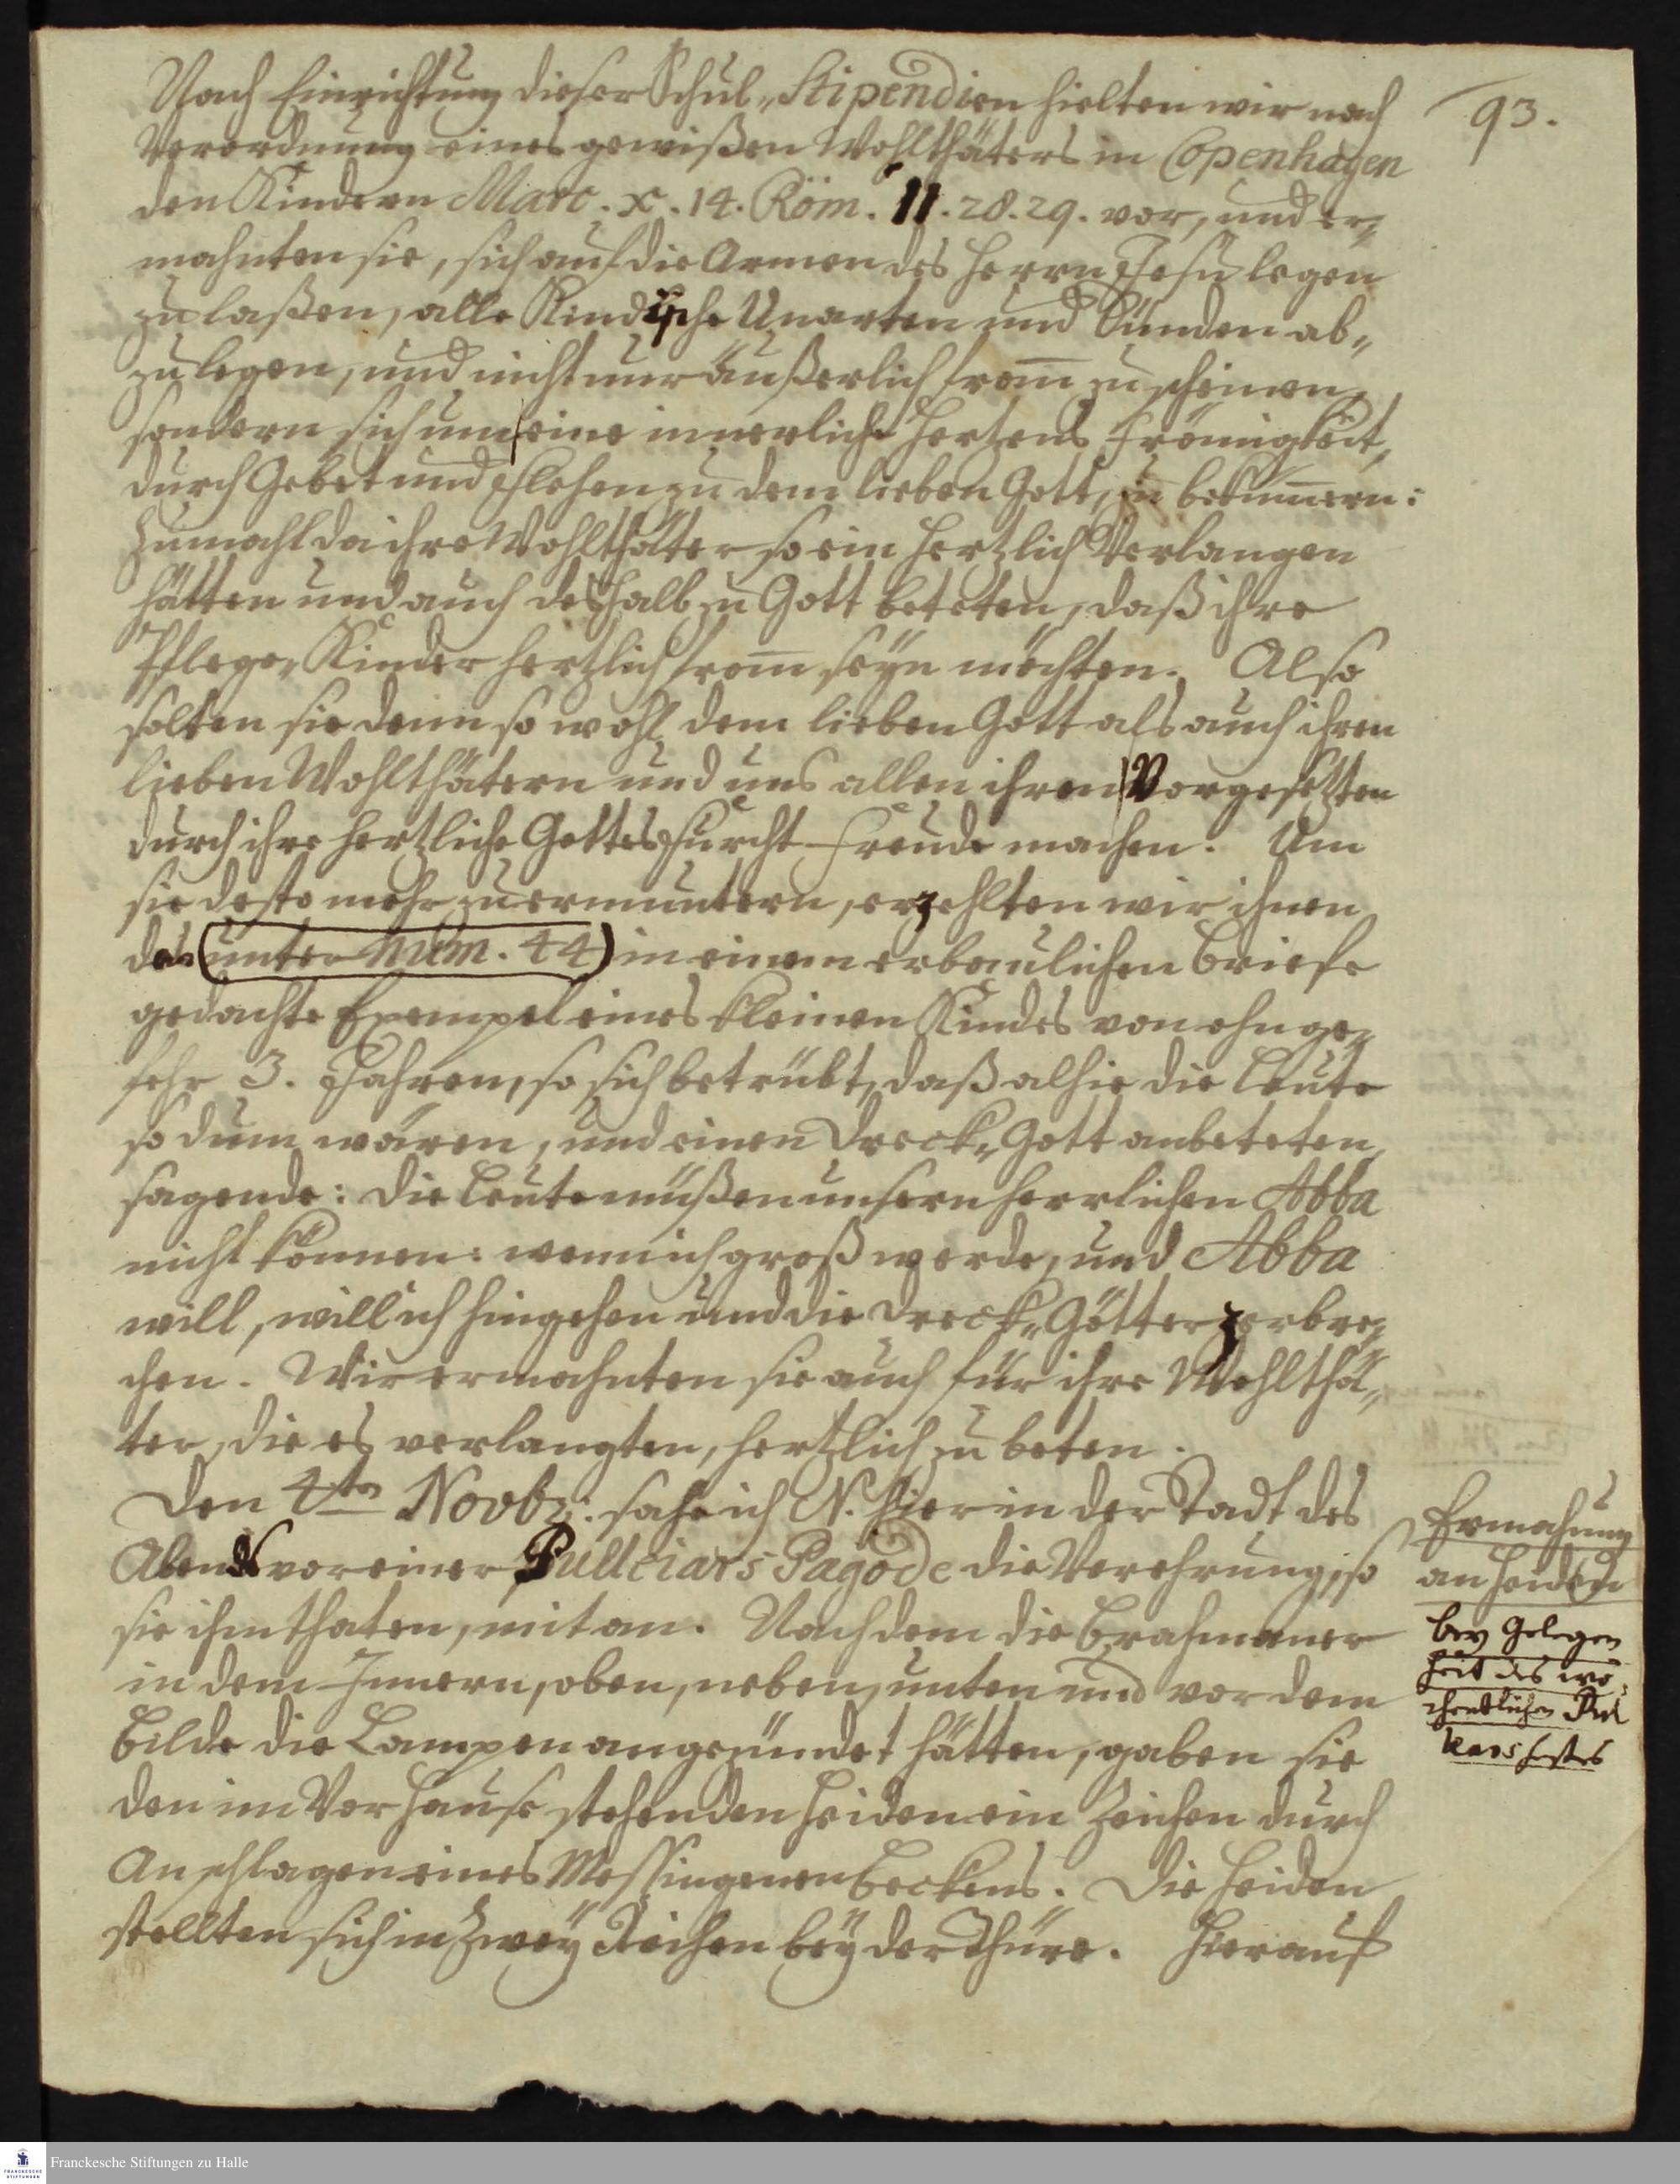 93.
Nach Einrichtung dieser Schul-Stipendien hielten wir nach
Verordnung eines gewißen Wohlthäters in Copenhagen
den Kindern Marc. X. 14. Röm. 11. 28. 29. vor, und er-
mahnten sie, sich auf die Armen des Herrn Jesu legen
zu laßen, alle Kindische Unarten und Sünden ab-
zulegen, und nicht nur äußerlich from̄ zu scheinen,
sondern sich um eine innerliche Hertzens Frömigkeit,
durch Gebet und Flehen zu dem lieben Gott, zu bekum̄ern:
Zumahl da ihre Wohlthäter so ein hertzlich Verlangen
hätten und auch deshalb zu Gott beteten, daß ihre
Pflege-Kinder hertzlich from̄ seyn möchten. Also
solten sie denn so wohl dem lieben Gott als auch ihren
lieben Wohlthätern und uns allen ihren Vorgesetzten
durch ihre hertzliche Gottesfurcht Freude machen. Um
sie desto mehr zu ermuntern, erzehlten wir ihnen
das (unter Num. 44) in einem erbaulichen Briefe
gedachte Exempel eines kleinen Kindes von ohnge-
fehr 3. Jahren, so sich betrübt, daß alhie die Leute
so dum wären, und einen Dreck-Gott anbeteten,
sagende: die Leute müßen unsern herrlichen Abba
nicht kennen: wenn ich groß werde, und Abba
will, will ich hingehen und die Dreck-Götter zerbre-
chen. Wir ermahnten sie auch für ihre Wohlthä-
ter, die es verlangten, hertzlich zu beten.
Den 4ten Novbr: sahe ich N. hier in der Stadt des
Abends vor einer Pulleiars Pagode die Verehrung, so
sie ihm thaten, mit an. Nachdem die Brahmaner
in dem Innern, oben, neben, unten und vor dem
Bilde die Lampen angezündet hätten, gaben sie
den im Vorhause stehenden Heiden ein Zeichen durch
Anschlagen eines Messingenen Beckens. Die Heiden
stellten sich in zwey Reihen bey der Thüre. Hierauf
Ermahnung
an Heiden
bey Gelegen
heit des wö-
chentlichen
festes
Franckesche Stiftungen zu Halle